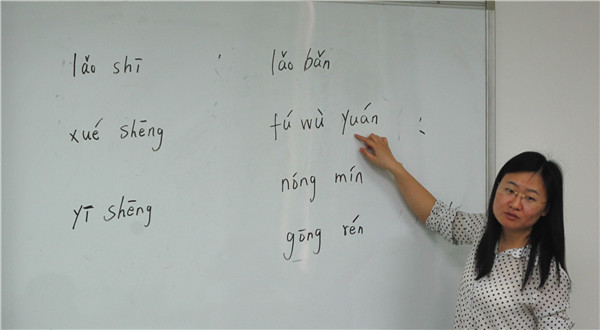 lǎo shī
xué shēng
yī shēng
lǎo bǎn
fú wù yuán
nóng mín
gōng rén